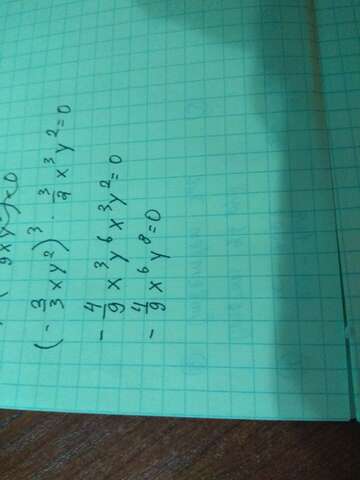 (-\frac{3}{3}xy²)³ · \frac{3}{2}x³y²=0
-\frac{4}{9}x³y⁶x³y²=0
-\frac{4}{9}x⁶y⁸=0